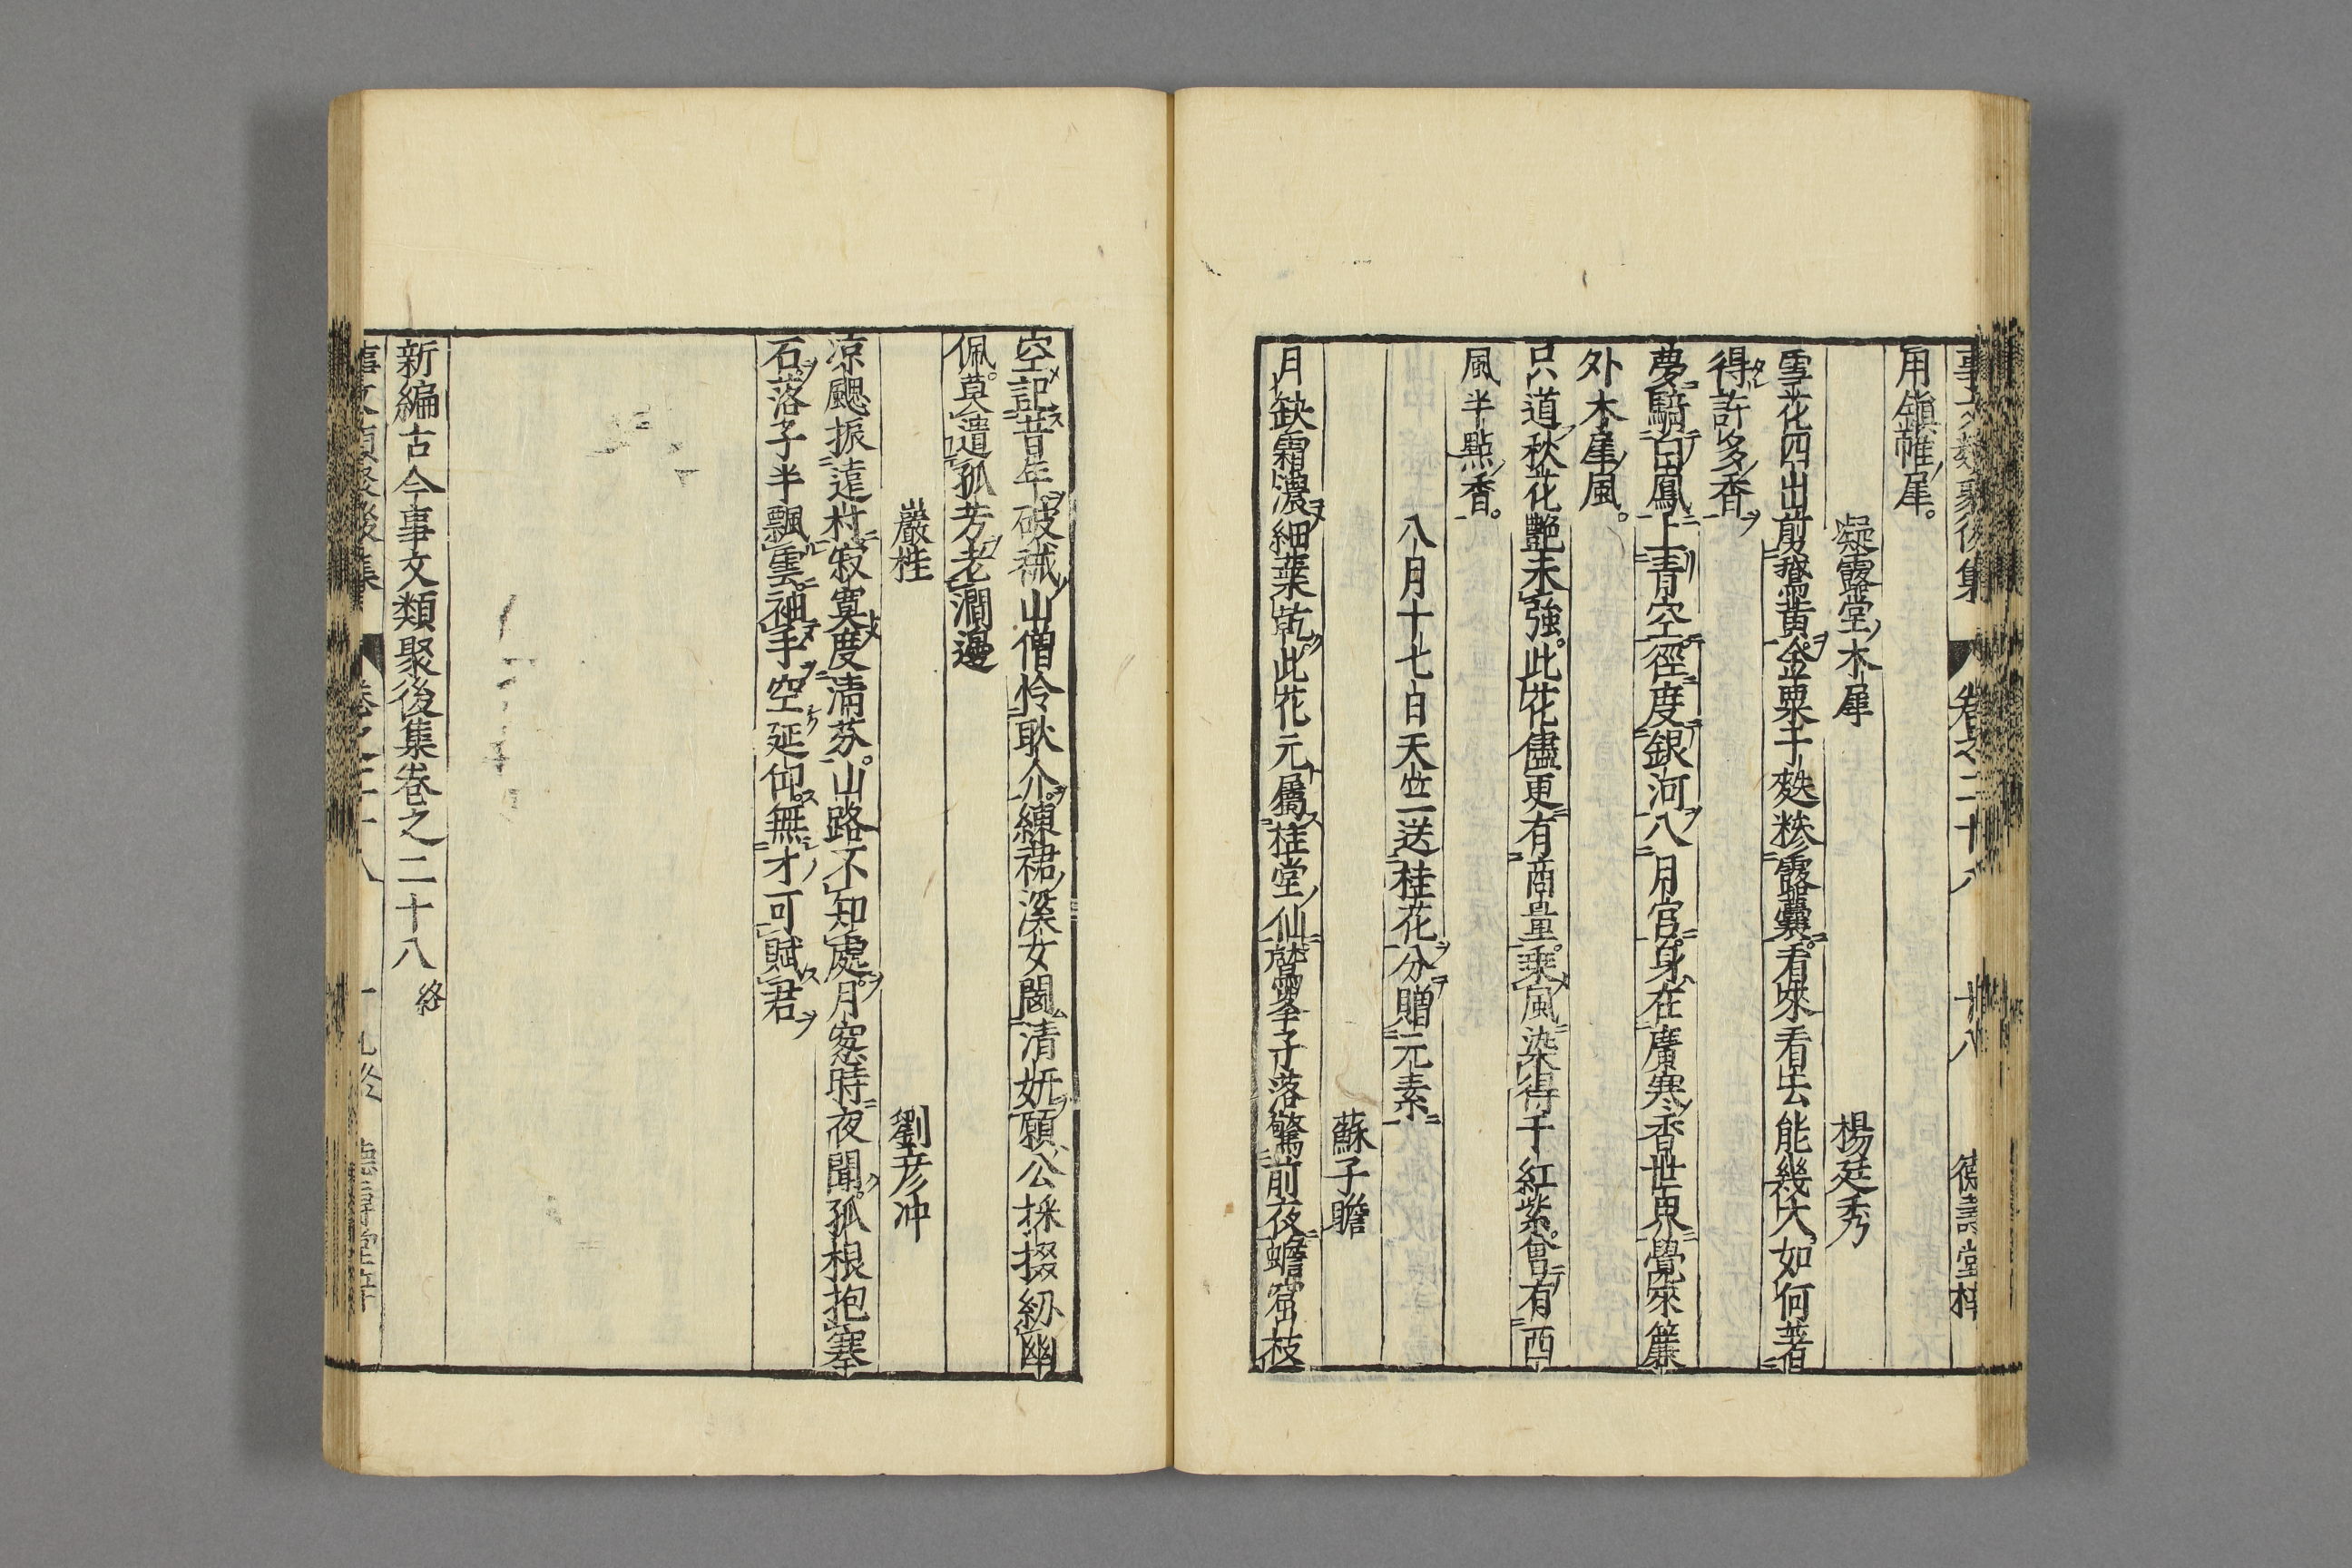 事文類聚後集 卷之二十八 十八 德壽堂梓
用鎭帷犀。
凝露堂木犀 楊廷秀
雪花四出剪鵞黃。金粟千麩糝露囊。看來看去能幾大。如何著
得許多香
夢騎白鳳上青空。徑度銀河入月宮。身在廣寒香世界。覺來簾
外木犀風。
只道秋花艷未強。此花儘更有商量。乘風染得千紅紫。會有西
風半點香。
八月十七日天竺送桂花分贈元素
蘇子瞻
月缺霜濃細葉乾。此花元屬桂堂仙。鷲峯子落驚前夜。蟾窟枝
空記昔年。破裓山僧怜耿介。練裙溪女鬪清妍。願公採掇紉幽
佩。莫遣孤芳老澗邊
巖桂 劉彥冲
凉颸振遠村。寂寞度清芬。山路不知處。月窓時夜聞。孤根抱蹇
石。落子半飄雲。袖手空延伫。無才可賦君
新編古今事文類聚後集卷之二十八 終